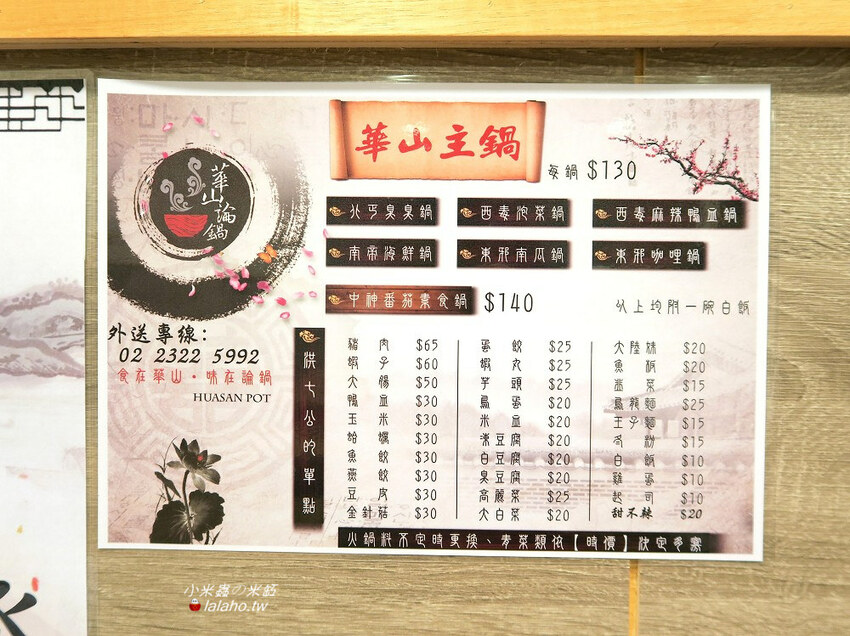 華山論鍋
外送專線：
02 2322 5992
食在華山・味在論鍋
HUASAN POT
華山主鍋
每鍋 $130
北丐臭臭鍋
西毒泡菜鍋
西毒麻辣鴨血鍋
南帝海鮮鍋
東邪南瓜鍋
東邪咖哩鍋
中神番茄素食鍋 $140
以上均附一碗白飯
洪七公的單點
豬肉 $65
蝦子 $60
大腸 $50
鴨血 $30
玉米 $30
蛤蠣 $30
魚餃 $30
燕餃 $30
豆皮 $30
金針菇 $30
蛋餃 $25
蝦丸 $25
芋頭 $25
鳥蛋 $20
米血 $20
凍豆腐 $20
白豆腐 $20
臭豆腐 $20
高麗菜 $25
大白菜 $20
大陸妹 $20
魚板 $20
茼菜 $15
烏龍麵 $25
王子麵 $15
冬粉 $15
白飯 $10
雞蛋 $10
起司 $10
甜不辣 $20
火鍋料不定時更換、青菜類依【時價】決定多寡
小米蟲の米缸
lalaho.tw